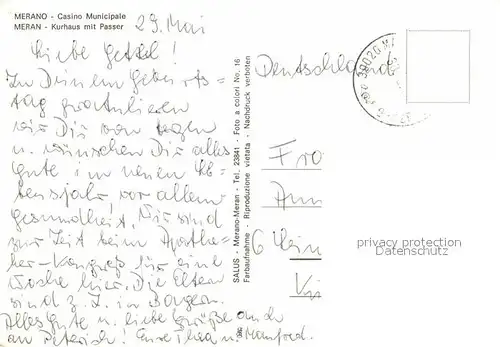 MERANO - Casino Municipale
MERAN - Kurhaus mit Passer
29. Mai
Liebe !
Zu Deinem Geburts-
tag gratulieren
wir Dir von Herzen
u. wünschen Dir alles
Gute im neuen Le-
bensjahr, vor allem
Gesundheit. Wir sind
zur Zeit beim Apothe-
ker-Kongreß für eine
Woche hier. Die Eltern
sind z. Z. in
Alles Gute u. liebe Grüße auch
an Dieterich! u. Manfred.
SALUS - Merano-Meran - Tel. 23841 - Foto a colori No. 16
Farbaufnahme - Riproduzione vietata - Nachdruck verboten
Deutschland
39020
Fra
Ann
6
privacy protection
Datenschutz